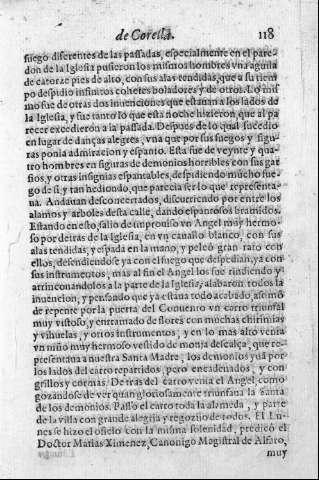 de Corella. 118
fuego diferentes de las passadas, especialmente en el pare-
don de la Iglesia pusieron los mismos hombres vna aguila
de catorze pies de alto, con sus alas tendidas, que a su tiem
po despidio infinitos cohetes boladores y de otros. Lo mis
mo fue de otras dos inuenciones que estauan a los lados de
la Iglesia, y fue tanto lo que esta noche hizieron que al pa
recer excedieron a la passada. Despues de lo qual sucedio
en lugar de danças alegres, vna que por sus fuegos y figu-
ras ponia admiracion y espanto. Esta fue de veynte y qua-
tro hombres en figuras de demonios horribles con sus gar
fios, y otras insignias espantables, despidiendo mucho fue-
go de si y tan hediondo, que parecia ser lo que representa-
ua. Andauan desconcertados, discurriendo por entre los
alamos y arboles desta calle, dando espantosos bramidos.
Estando en esto, salio de improuiso vn Angel muy hermo-
so por detras de la Iglesia, en vn cauallo blanco, con sus
alas tendidas, y espada en la mano, y peleó gran rato con
ellos, defendiendose ya con el fuego que despedian, ya con
sus instrumentos, mas al fin el Angel los fue rindiendo y
arrinconandolos a la parte de la Iglesia, alabaron todos la
inuencion, y pensando que ya estaua todo acabado, asomó
de repente por la puerta del Conuento vn carro triunfal
muy vistoso, y entramado de flores con muchas chirimias
y vihuelas, y otros instrumentos, y en lo mas alto venia
vn niño muy hermoso vestido de monja descalça, que re-
presentaua a nuestra Santa Madre, los demonios yuã por
los lados del carro repartidos, pero encadenados, y con
grillos y cormas. De tras del carro venia el Angel como
gozandose de ver quan gloriosamente triunfaua la santa
de los demonios. Passo el carro toda la alameda, y parte
de la villa con grande alegria y regozijo de todos. El Lu-
nes se hizo el oficio con la misma solenidad, predicó el
Doctor Matias Ximenez, Canonigo Magistral de Alfaro,
muy